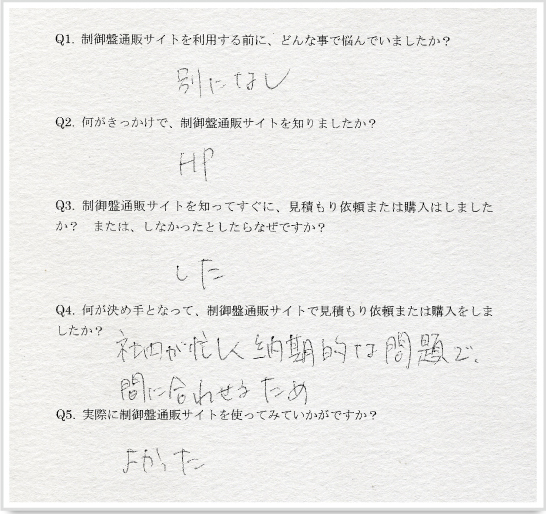 Q1. 制御盤通販サイトを利用する前に、どんな事で悩んでいましたか？
別になし
Q2. 何がきっかけで、制御盤通販サイトを知りましたか？
HP
Q3. 制御盤通販サイトを知ってすぐに、見積もり依頼または購入はしました
か？　または、しなかったとしたらなぜですか？
した
Q4. 何が決め手となって、制御盤通販サイトで見積もり依頼または購入をしま
したか？
社内が忙しく納期的な問題で、
間に合わせるため
Q5. 実際に制御盤通販サイトを使ってみていかがですか？
よかった